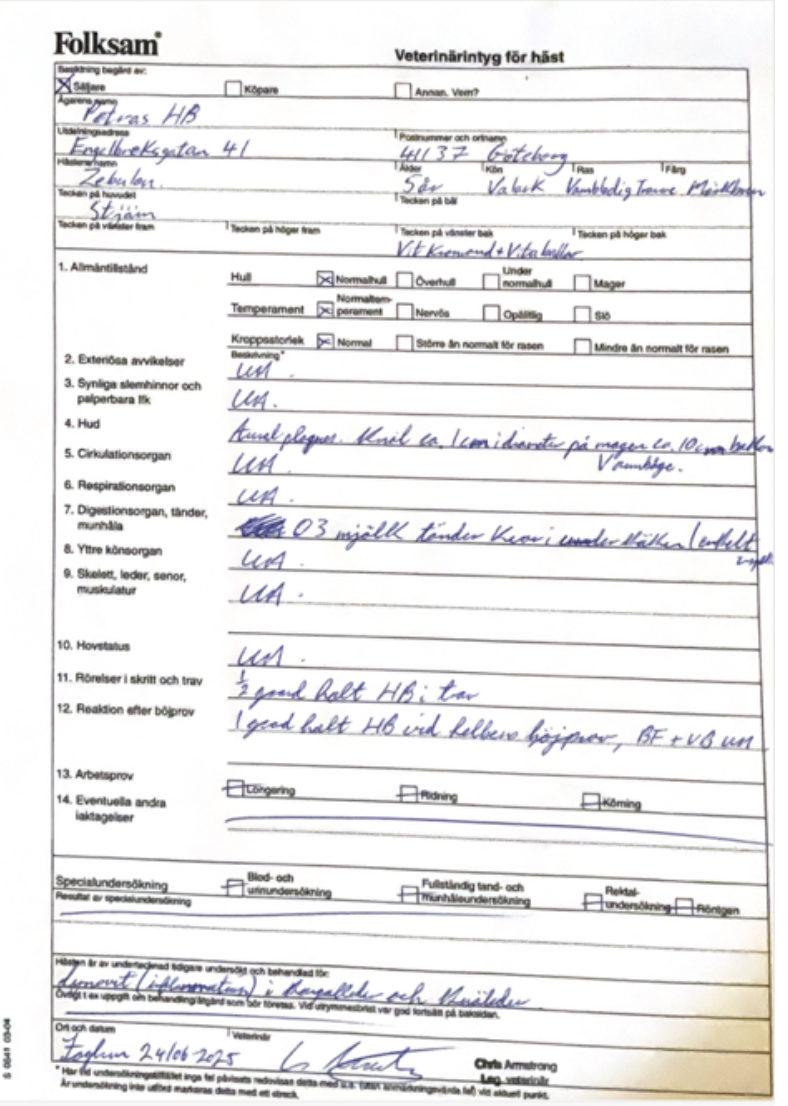 Folksam®
Veterinärintyg för häst
Besiktning begärd av:
Säljare Köpare Annan. Vem?
Ägarens namn
Petras HB
Utdelningsadress Postnummer och ortnamn
Engelbreksgatan 41 41137 Göteborg
Hästens namn Ålder Kön Ras Färg
Zebulon. 5 år Valack Varmblodig Travare Mörkbrun
Tecken på huvudet Tecken på bål
Stjärn
Tecken på vänster fram Tecken på höger fram Tecken på vänster bak Tecken på höger bak
Vit Kronrand + Vita ballar
1. Allmäntillstånd
Hull Normalhull Överhull Under normalhull Mager
Temperament Normaltemperament Nervös Opålitlig Slö
Kroppsstorlek Normal Större än normalt för rasen Mindre än normalt för rasen
Beskrivning*
2. Exteriösa avvikelser UA.
3. Synliga slemhinnor och palperbara lfk UA.
4. Hud Aural plaques. Knöl ca. 1 cm i diameter på magen ca. 10 cm bakom
5. Cirkulationsorgan UA V armbåge.
6. Respirationsorgan UA.
7. Digestionsorgan, tänder, munhåla 03 mjölk tänder Kvar i underkäken (enkelt
8. Yttre könsorgan UA.
9. Skelett, leder, senor, muskulatur UA.
10. Hovstatus UA.
11. Rörelser i skritt och trav ½ grad halt HB i trav
12. Reaktion efter böjprov 1 grad halt HB vid helbens böjprov, BF + VB UA
13. Arbetsprov Longering Ridning Körning
14. Eventuella andra iaktagelser
Specialundersökning Blod- och urinundersökning Fullständig tand- och munhåleundersökning Rektal-undersökning Röntgen
Resultat av specialundersökning
Hästen är av undertecknad tidigare undersökt och behandlad för:
Synovit (inflammation) i Kotleder och Knäleder
Övrigt t ex uppgift om behandling/åtgärd som bör företas. Vid utrymmesbrist var god fortsätt på baksidan.
Ort och datum Veterinär
24/06-2025
Chris Armstrong
Leg. veterinär
* Har vid undersökningstillfället inga fel påvisats redovisas detta med u.a. (utan anmärkningsvärda fel) vid aktuell punkt.
Är undersökning inte utförd markeras detta med ett streck.
S 0041 03-04